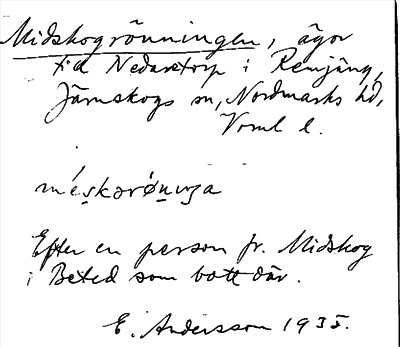 Midskogrönningen, ägor
t. d Nedantorp i Remjäng,
Järnskogs sn, Nordmarks hd,
Vrml l.
méskorǿnıŋa
Efter en person fr. Midskog
i Beted som bott där.
E. Andersson 1935.